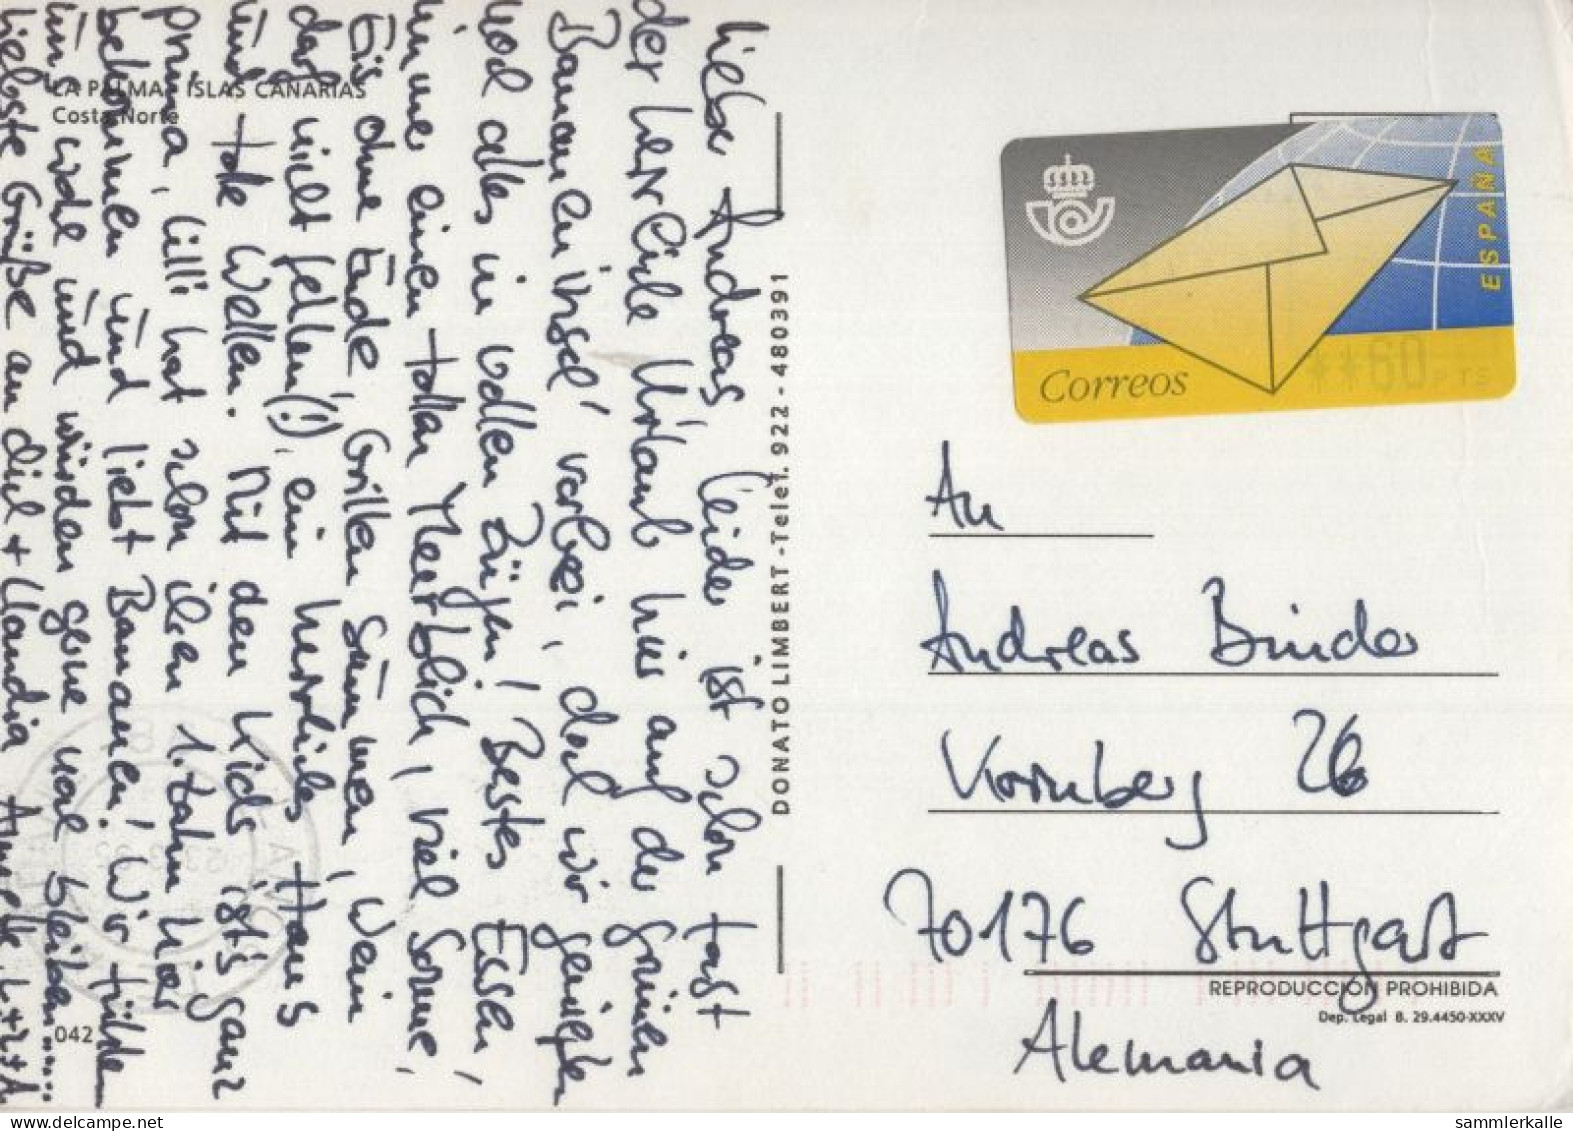 LA PALMA - ISLAS CANARIAS
Costa Norte
Liebe Andreas, leider ist schon fast
der herrliche Urlaub hier auf der grünen
Bananeninsel vorbei, doch wir genießen
noch alles in vollen Zügen! Bestes Essen,
immer einen tollen Meerblich, viel Sonne,
Eis ohne Ende, Grillen, Säumen, Wein
darf nicht fehlen(!), ein herrliches Haus
und tolle Wellen. Mit den Kids ist's ganz
prima, Lilli hat schon ihren 1. Zahn hier
bekommen und liebt Bananen! Wir fühlen
uns wohl und würden gerne noch bleiben.....
Liebste Grüße an dich + Claudia
042
DONATO LIMBERT - Telef. 922 - 480391
Correos
ESPAÑA
**60 PTS
An
Andreas Binder
Kornberg 26
70176 Stuttgart
Alemania
REPRODUCCIÓN PROHIBIDA
Dep. Legal B. 29.4450-XXXV
sammlerkalle